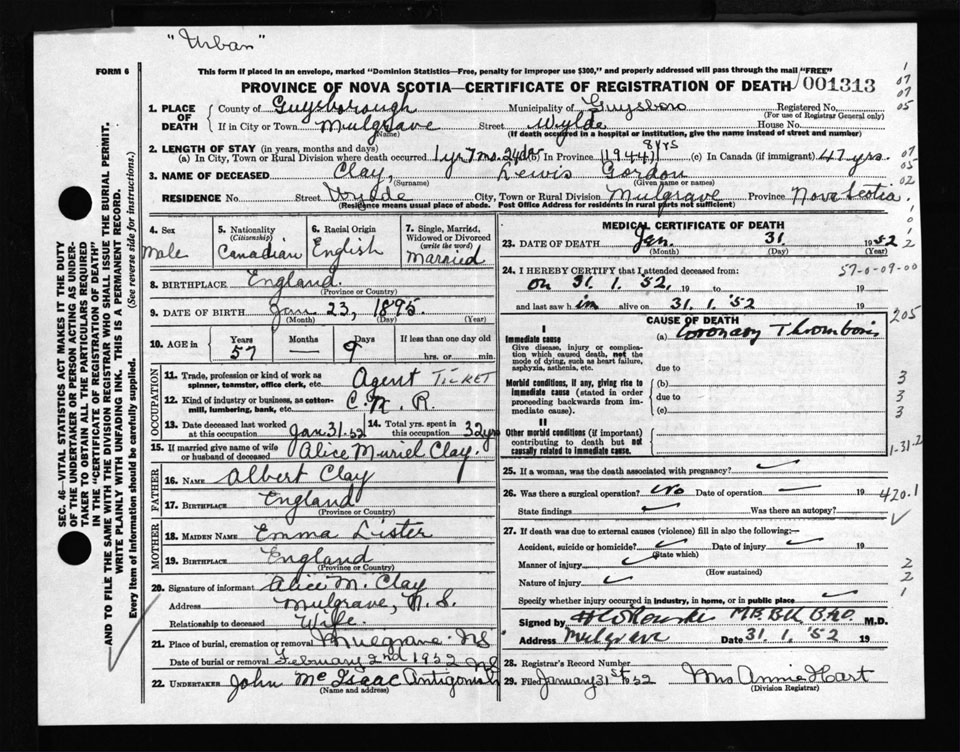 "Urban"
FORM 6
This form if placed in an envelope, marked "Dominion Statistics—Free, penalty for improper use $300," and properly addressed will pass through the mail "FREE"
PROVINCE OF NOVA SCOTIA—CERTIFICATE OF REGISTRATION OF DEATH 001313
1. PLACE OF DEATH
County of Guysborough Municipality of Guysboro Registered No.
(For use of Registrar General only)
If in City or Town Mulgrave Street Wylde House No.
(Name) (If death occurred in a hospital or institution, give the name instead of street and number)
2. LENGTH OF STAY (in years, months and days) 8 yrs
(a) In City, Town or Rural Division where death occurred 1 yr 7 mo. 24 da (b) In Province (1944) (c) In Canada (if immigrant) 47 yrs.
3. NAME OF DECEASED Clay, Lewis Gordon
(Surname) (Given name or names)
RESIDENCE No. Street Wylde City, Town or Rural Division Mulgrave Province Nova Scotia
(Residence means usual place of abode. Post Office Address for residents in rural parts not sufficient)
4. Sex Male
5. Nationality (Citizenship) Canadian
6. Racial Origin English
7. Single, Married, Widowed or Divorced (write the word) Married
8. BIRTHPLACE England
(Province or Country)
9. DATE OF BIRTH Jan 23, 1895.
(Month) (Day) (Year)
10. AGE in Years 57 Months — Days 9 If less than one day old
hrs. or min.
OCCUPATION
11. Trade, profession or kind of work as spinner, teamster, office clerk, etc. Agent TICKET
12. Kind of industry or business, as cotton-mill, lumbering, bank, etc. C. N. R.
13. Date deceased last worked at this occupation Jan 31. 52
14. Total yrs. spent in this occupation 32 yrs
15. If married give name of wife or husband of deceased Alice Muriel Clay.
FATHER
16. NAME Albert Clay
17. BIRTHPLACE England
(Province or Country)
MOTHER
18. MAIDEN NAME Emma Lister
19. BIRTHPLACE England
(Province or Country)
20. Signature of informant Alice M. Clay
Address Mulgrave, N. S.
Relationship to deceased Wife.
21. Place of burial, cremation or removal Mulgrave NS
Date of burial or removal February 2nd 1952
22. UNDERTAKER John McIsaac Antigonish NS
(Name and address)
MEDICAL CERTIFICATE OF DEATH
23. DATE OF DEATH Jan. 31 1952
(Month) (Day) (Year)
24. I HEREBY CERTIFY that I attended deceased from:
on 31. 1. 52, 19 to 19
and last saw him alive on 31. 1. '52 19
CAUSE OF DEATH
I
Immediate cause
Give disease, injury or complication which caused death, not the mode of dying, such as heart failure, asphyxia, asthenia, etc.
(a) Coronary Thrombosis
due to
Morbid conditions, if any, giving rise to immediate cause (stated in order proceeding backwards from immediate cause).
(b)
due to
(c)
II
Other morbid conditions (if important) contributing to death but not causally related to immediate cause.
25. If a woman, was the death associated with pregnancy? ✓
26. Was there a surgical operation? No Date of operation ✓ 19
State findings ✓ Was there an autopsy?
27. If death was due to external causes (violence) fill in also the following:—
Accident, suicide or homicide? ✓ Date of injury ✓ 19
(State which)
Manner of injury ✓
(How sustained)
Nature of injury ✓
Specify whether injury occurred in industry, in home, or in public place ✓
Signed by M.D.
Address Mulgrave Date 31. 1. '52 19
28. Registrar's Record Number
29. Filed January 31st 1952 Mrs Annie Hart
(Division Registrar)
SEC. 46—VITAL STATISTICS ACT MAKES IT THE DUTY OF THE UNDERTAKER OR PERSON ACTING AS UNDERTAKER TO OBTAIN ALL THE PARTICULARS REQUIRED IN THE "CERTIFICATE OF REGISTRATION OF DEATH" AND TO FILE THE SAME WITH THE DIVISION REGISTRAR WHO SHALL ISSUE THE BURIAL PERMIT.
WRITE PLAINLY WITH UNFADING INK. THIS IS A PERMANENT RECORD.
Every item of information should be carefully supplied. (See reverse side for instructions.)
1
07
07
05
07
05
02
1
0
1
2
57-0-09-00
205
3
3
3
1-31-2
420.1
✓
2
2
1